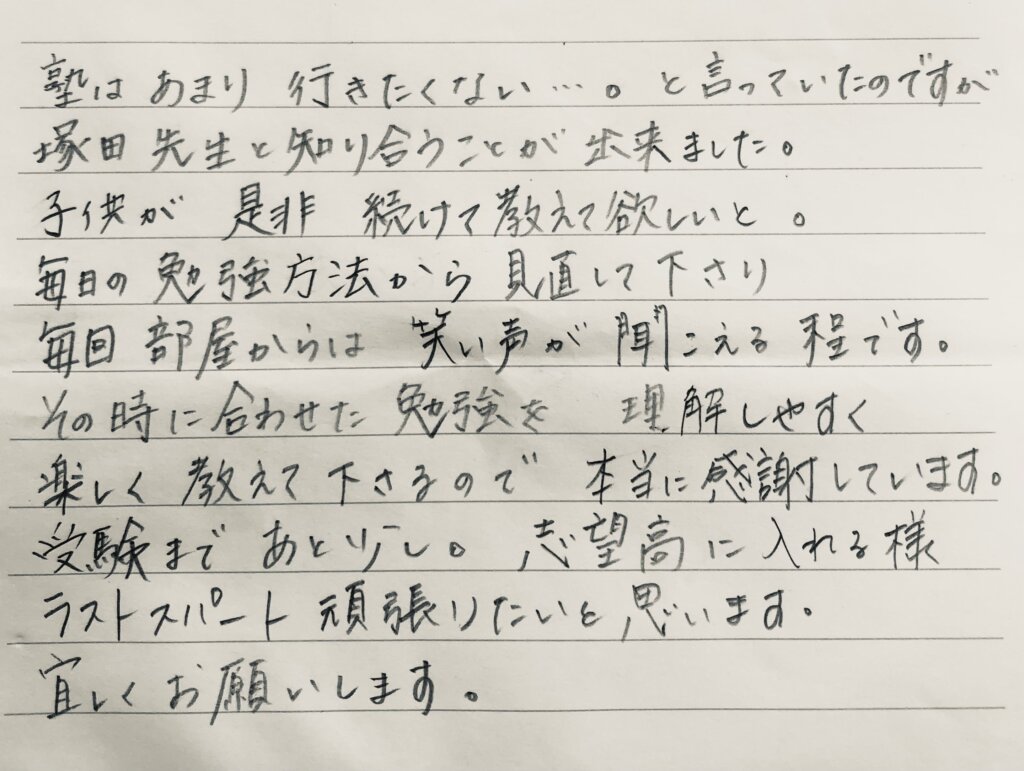 塾は あまり 行きたくない…。と言っていたのですが
塚田 先生と知り合うことが 出来ました。
子供が 是非 続けて教えて欲しいと 。
毎日の 勉強方法から 見直して下さり
毎回 部屋からは 笑い声が 聞こえる 程です。
その時に合わせた 勉強を 理解しやすく
楽しく 教えて 下さるので 本当に感謝しています。
受験まで あと少し。 志望高に入れる様
ラストスパート 頑張りたいと 思います。
宜しく お願いします。